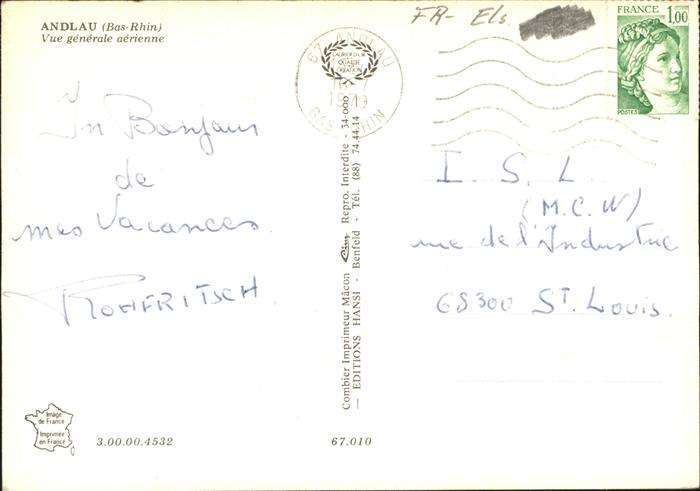 ANDLAU (Bas-Rhin)
Vue générale aérienne
FR- Els
FRANCE
1,00
POSTES
67 ANDLAU
BAS-RHIN
Un Bonjour
de
mes Vacances.
ROHFRITSCH.
I. S. L
(M.C.W)
rue de l'Industrie
68300 ST. LOUIS.
Combier Imprimeur Mâcon Cim Repro. Interdite - 34-000
— EDITIONS HANSI - Benfeld - Tél. (88) 74.44.14
Image
de France
Imprimée
en France
3.00.00.4532
67.010